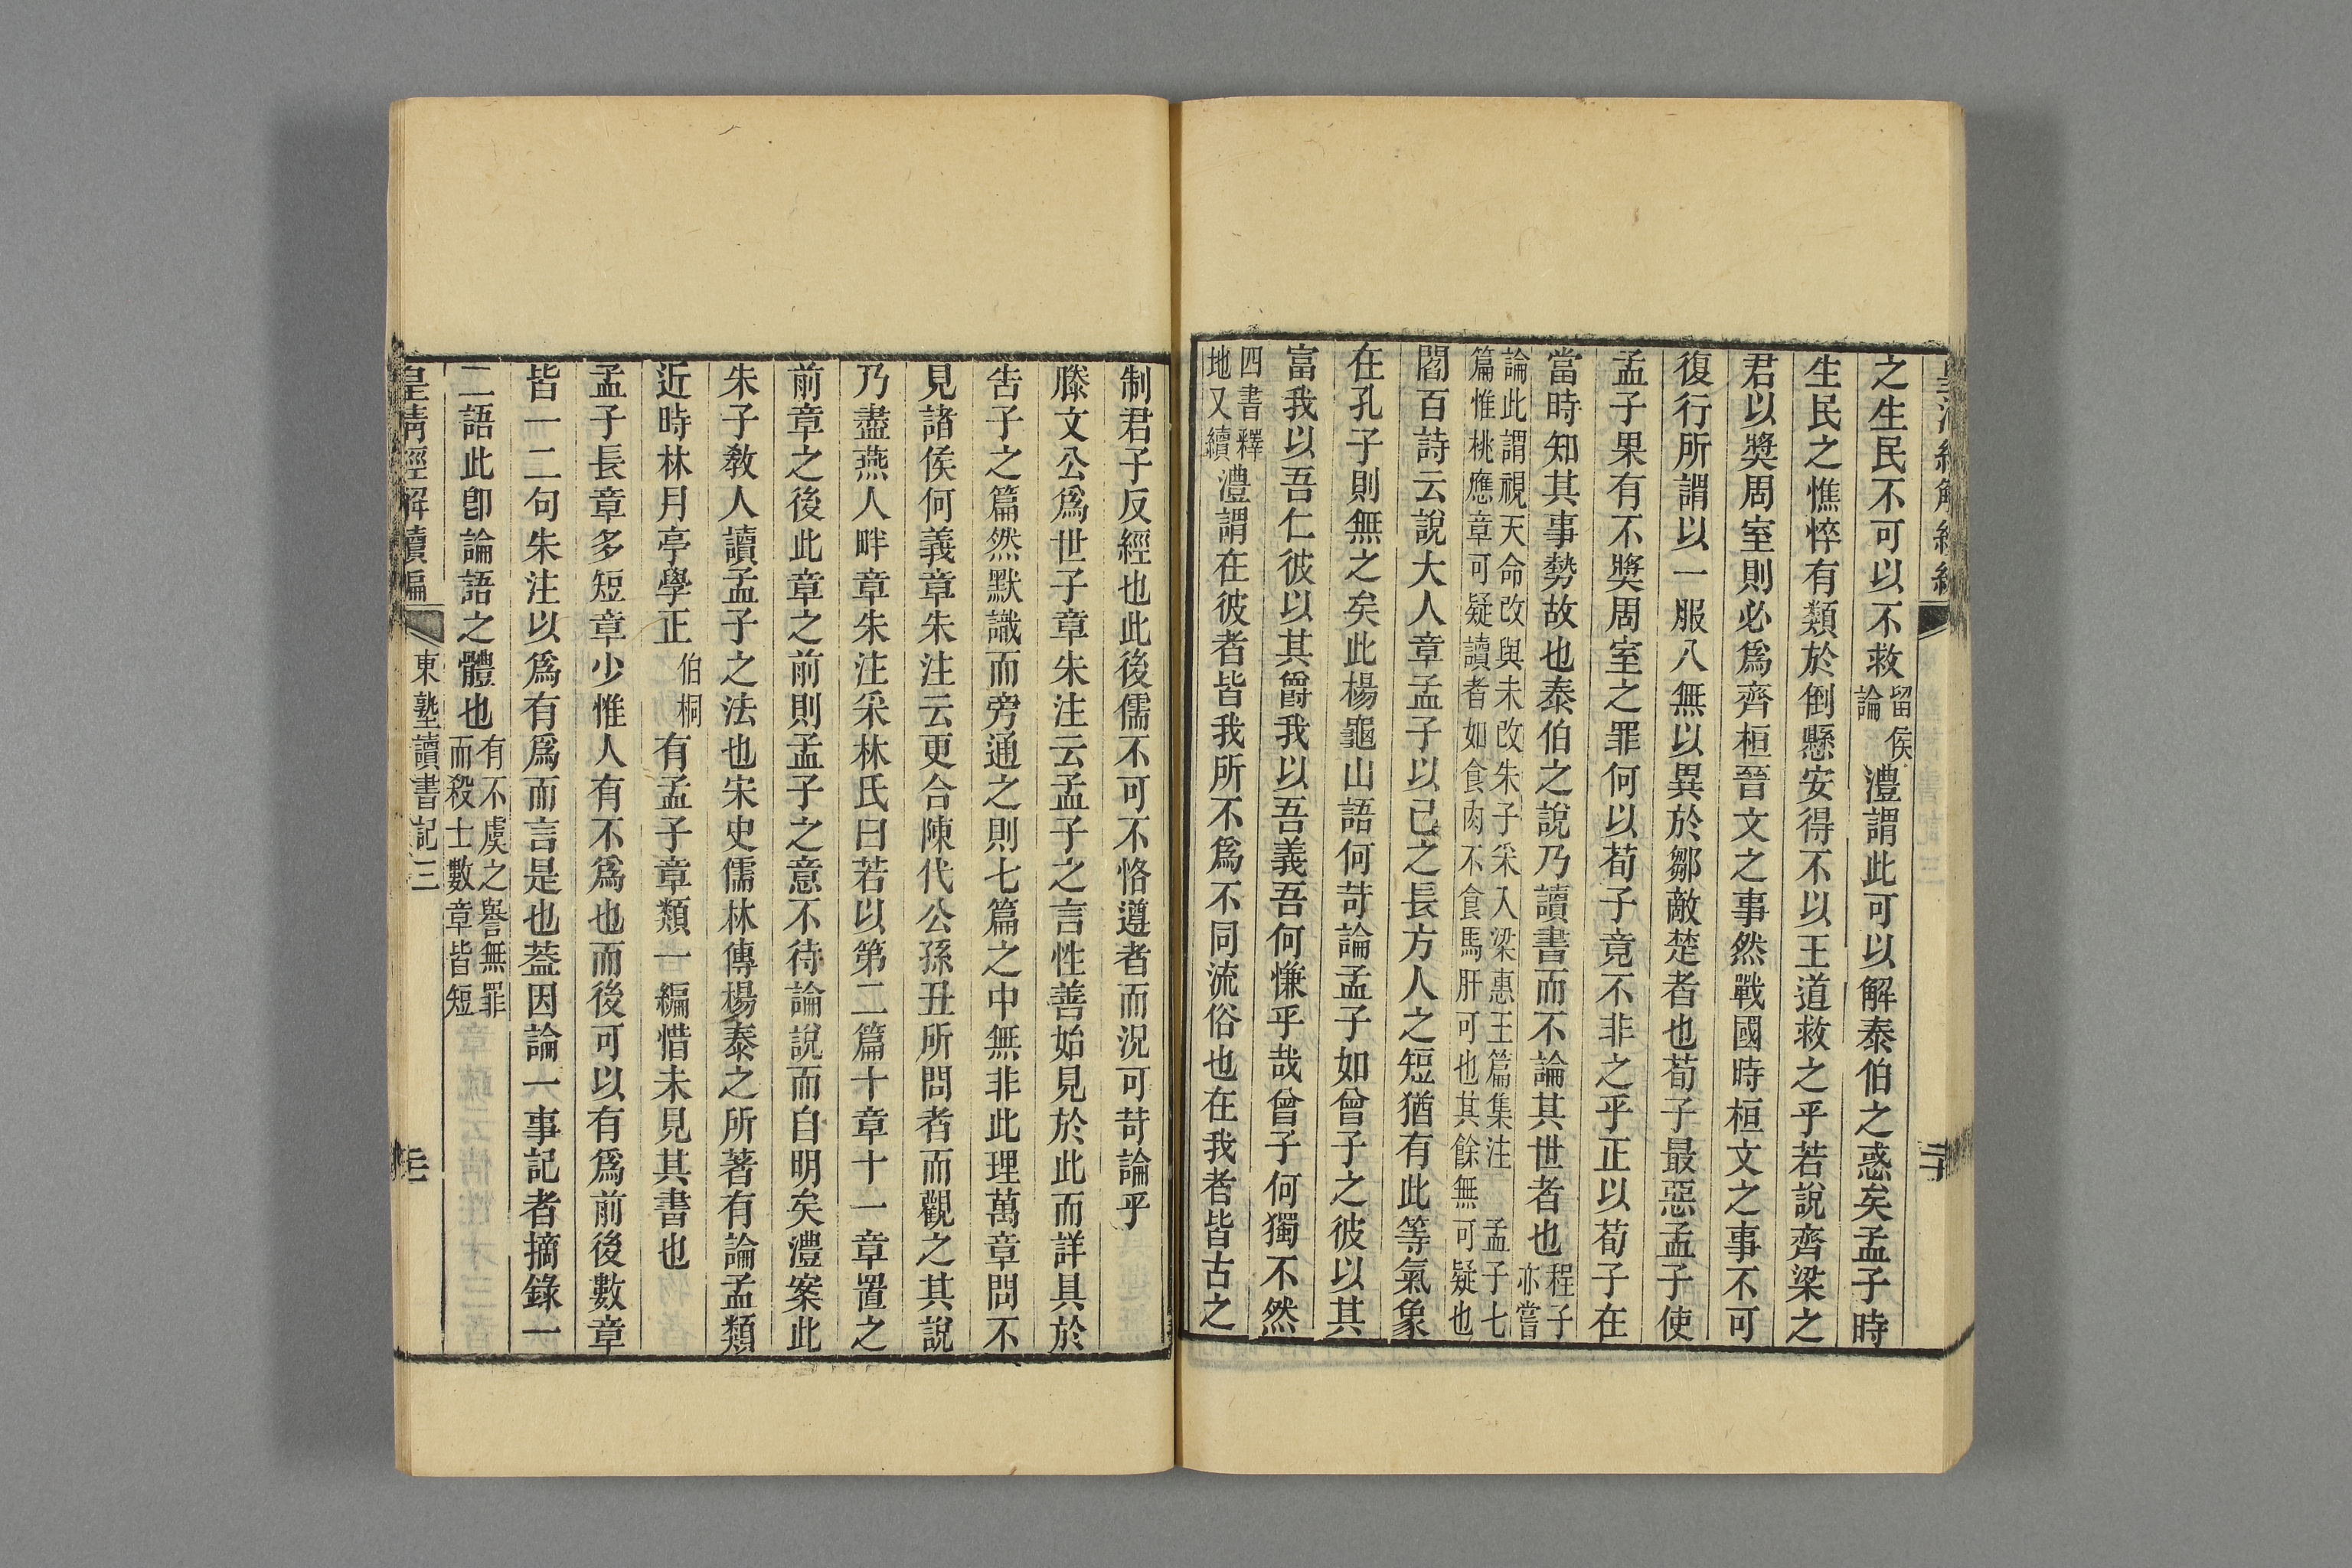 之生民不可以不救留侯論澧謂此可以解泰伯之惑矣孟子時
生民之憔悴有類於倒懸安得不以王道救之乎若說齊梁之
君以獎周室則必爲齊桓晉文之事然戰國時桓文之事不可
復行所謂以一服八無以異於鄒敵楚者也荀子最惡孟子使
孟子果有不獎周室之罪何以荀子竟不非之乎正以荀子在
當時知其事勢故也泰伯之說乃讀書而不論其世者也程子亦嘗
論此謂視天命改與未改朱子采入梁惠王篇集注 孟子七
篇惟桃應章可疑讀者如食肉不食馬肝可也其餘無可疑也
閻百詩云說大人章孟子以己之長方人之短猶有此等氣象
在孔子則無之矣此楊龜山語何苛論孟子如曾子之彼以其
富我以吾仁彼以其爵我以吾義吾何慊乎哉曾子何獨不然
四書釋地又續澧謂在彼者皆我所不爲不同流俗也在我者皆古之
制君子反經也此後儒不可不恪遵者而況可苛論乎
滕文公爲世子章朱注云孟子之言性善始見於此而詳具於
告子之篇然默識而旁通之則七篇之中無非此理萬章問不
見諸侯何義章朱注云更合陳代公孫丑所問者而觀之其說
乃盡燕人畔章朱注采林氏曰若以第二篇十章十一章置之
前章之後此章之前則孟子之意不待論說而自明矣澧案此
朱子敎人讀孟子之法也宋史儒林傳楊泰之所著有論孟類
近時林月亭學正伯桐有孟子章類一編惜未見其書也
孟子長章多短章少惟人有不爲也而後可以有爲前後數章
皆一二句朱注以爲有爲而言是也蓋因論一事記者摘錄一
二語此卽論語之體也有不虞之譽無罪而殺士數章皆短
皇淸經解續編
東塾讀書記三